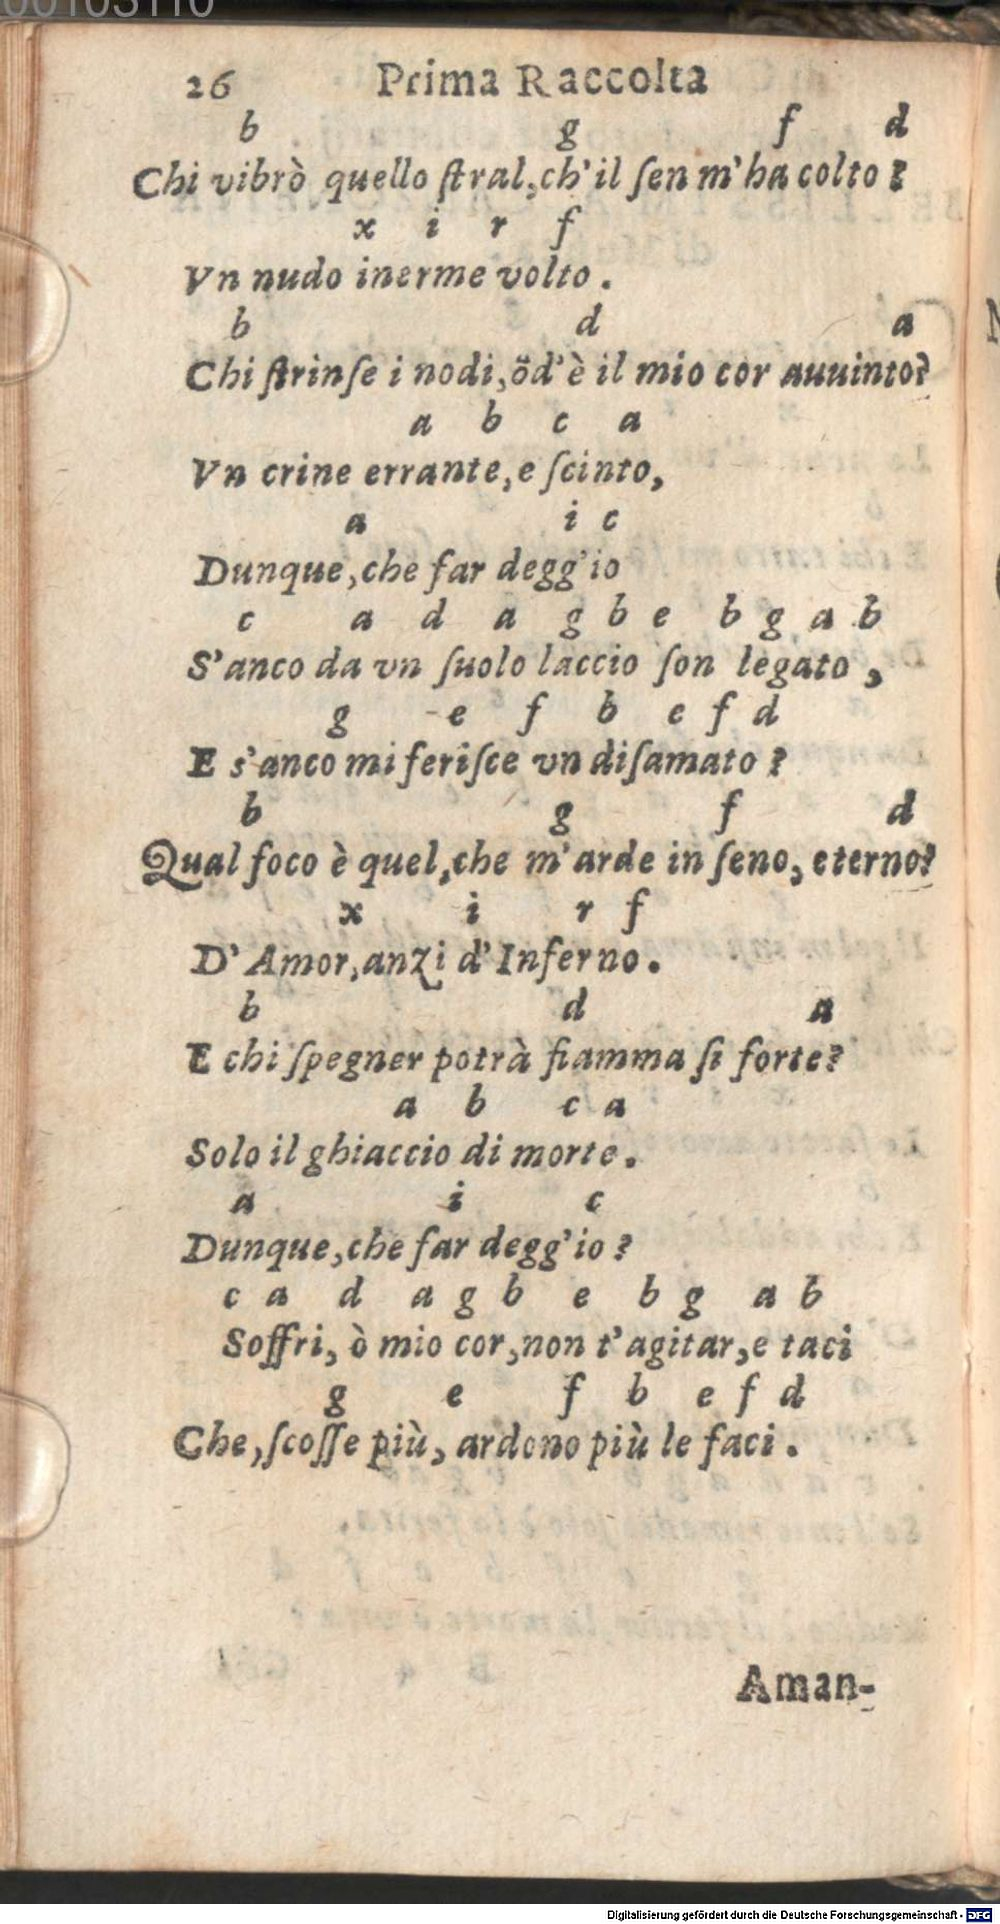 00103110
26 Prima Raccolta
b g f d
Chi vibrò quello ſtral,ch'il ſen m'ha colto?
x i r f
Vn nudo inerme volto.
b d a
Chi ſtrinſe i nodi,öd'è il mio cor auuinto?
a b c a
Vn crine errante,e ſcinto,
a i c
Dunque,che far degg'io
c a d a g b e b g a b
S'anco da vn ſuolo laccio ſon legato,
g e f b e f d
E s'anco mi feriſce vn diſamato?
b g f d
Qual foco è quel,che m'arde in ſeno, eterno?
x i r f
D'Amor,anzi d'Inferno.
b d a
E chi ſpegner potrà fiamma ſi forte?
a b c a
Solo il ghiaccio di morte.
a i c
Dunque,che far degg'io?
c a d a g b e b g a b
Soffri, ò mio cor,non t'agitar,e taci
g e f b e f d
Che,ſcoſſe più, ardono più le faci.
Aman-
Digitalisierung gefördert durch die Deutsche Forschungsgemeinschaft - DFG